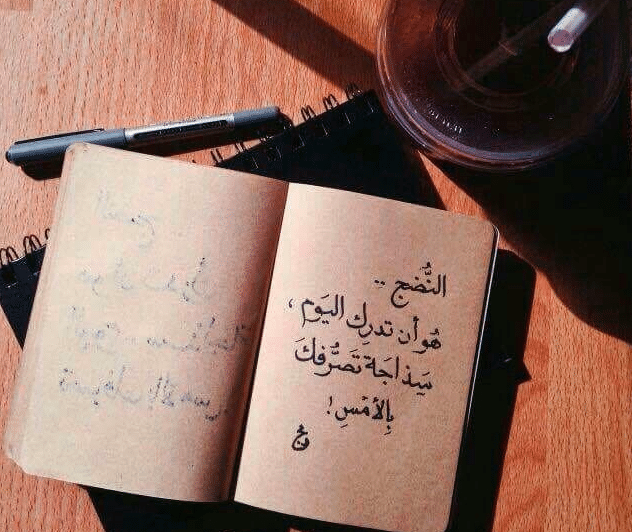 النُّضج ..
هُو أن تدرِك اليَوم ،
سَِذاجَة تَصَرُّفكَ
بِالأمْسِ!